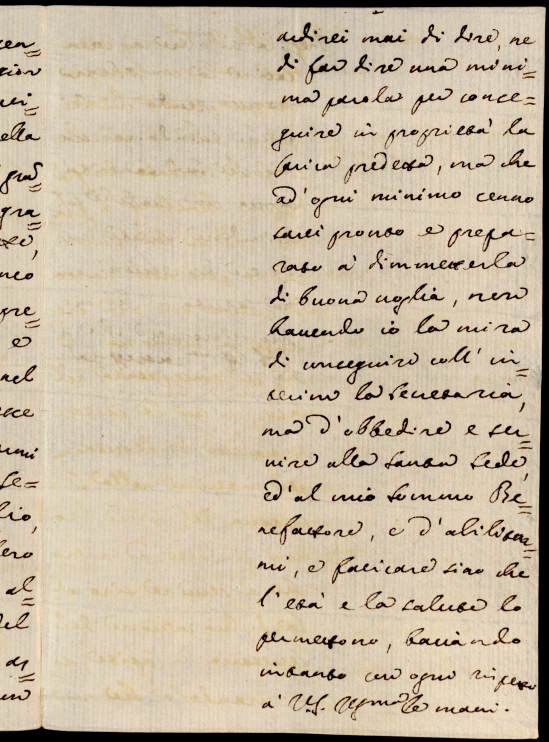 ardirei mai di dire, ne
di far dire una mini=
ma parola per conse=
guire in proprietà la
carica predetta, ma che
ad' ogni minimo cenno
sarei pronto e prepa=
rato à dimmetterla
di buona voglia, non
havendo io la mira
di conseguire coll' in=
terino la secretaria,
ma d' obbedire e ser=
vire alla santa sede,
ed' al mio sommo Be=
nefattore, e d' abilitar=
mi, e faticare sino che
l' età e la salute lo
permettono, baciando
intanto con ogni rispetto
à V.S. le mani.